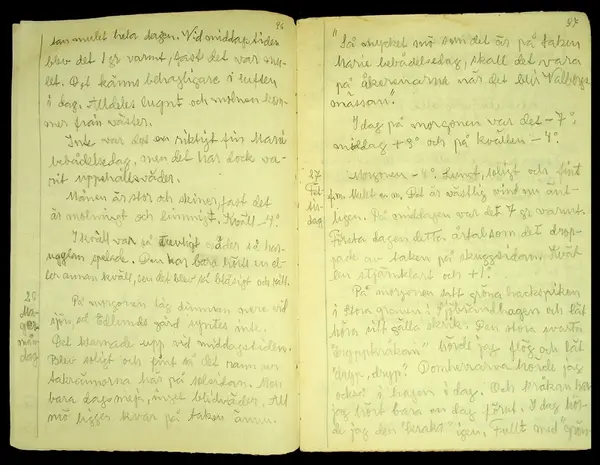 96
tan mulet hela dagen. Vid middagstiden
blev det 1 gr varmt, fast det var mu-
let. Det känns behagligare i luften
i dag. Alldeles lugnt och molnen kom-
mer från väster.
Inte var det en riktigt fin Marie
bebådelsedag, men det har dock va-
rit uppehållsväder.
Månen är stor och skiner, fast det
är molnigt och dimmigt. Kväll -4°.
I kväll var så trevligt väder så horn-
ugglan spelade. Den har bara hörts en el-
ler annan kväll, ten det blev så blåsigt och kallt.
26
Ma-
gen
mån
dag
På morgonen låg dimman nere vid
sjön, så Edlunds gård syntes inte.
Det klarnade upp vid middagstiden.
Blev soligt och fint så det rann ur
takrännorna här på solsidan. Men
bara dagsmeja, inget blidväder. All
snö ligger kvar på taken ännu.
97
"Så mycket snö som det är på taken
Marie bebådelsedag, skall det vara
på åkerrenarna när det blir Valborgs
mässan".
I dag på morgonen var det -7°,
middag +3° och på kvällen -4°.
27
tis-
dag
Morgonen -4°. Lugnt, soligt och fint
Det är västlig vind nu änt-
ligen. På middagen var det 7 gr varmt.
Första dagen detta årtal som det drop-
pade av taken på skuggsidan. Kväl-
len stjärnklart och +1°.
På morgonen satt gröna hackspiken
i stora granen i och lät
höra sitt gälla skrik. Den stora svarta
"Drypkråkan" hörde jag flög och lät
"dryp, dryp". Domherrarna hörde jag
också i hagen i dag. Och kråkan har
jag hört bara en dag förut. I dag hör-
de jag den "kraxa" igen. Fullt med "grön-